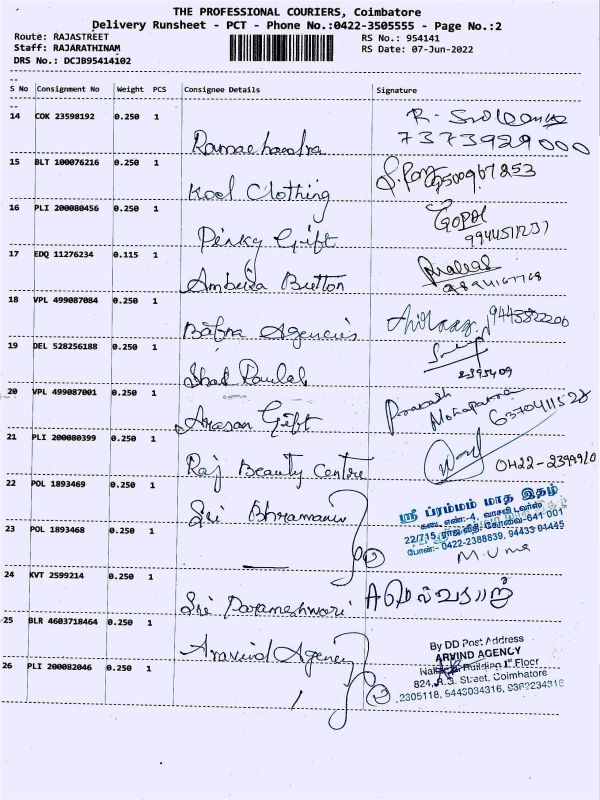 THE PROFESSIONAL COURIERS, Coimbatore
Delivery Runsheet - PCT - Phone No.:0422-3505555 - Page No.:2
Route: RAJASTREET RS No.: 954141
Staff: RAJARATHINAM RS Date: 07-Jun-2022
DRS No.: DCJB95414102
S No Consignment No Weight PCS Consignee Details Signature
14 COK 23598192 0.250 1
Ramachandra 7373929000
15 BLT 100076216 0.250 1
Kool Clothing
16 PLI 200080456 0.250 1 GOPAL
Perky Gift
17 EDQ 11276234 0.115 1
Ambika Button
18 VPL 499087084 0.250 1
Babra Agencies
19 DEL 528256188 0.250 1
2395409
20 VPL 499087001 0.250 1 Prakash Mohapatra
Arasan Gift 6370411528
21 PLI 200080399 0.250 1
Raj Beauty Centre
22 POL 1893469 0.250 1
Sri
ஸ்ரீ ப்ரம்மம் மாத இதழ்
கடை எண்:-4, வாசவி டவர்ஸ்
22/715, ராஜ வீதி, கோவை-641 001
போன்:- 0422-2388839, 94433 04445
23 POL 1893468 0.250 1 M. Uma
2
24 KVT 2599214 0.250 1
Sri Parameshwari
25 BLR 4603718464 0.250 1
Aravind Agency
By DD Post Address
ARVIND AGENCY
Building Iˢᵗ Floor
824, R.S. Street, Coimbatore
2305118, 9443034316, 9362234316
26 PLI 200082046 0.250 1
2